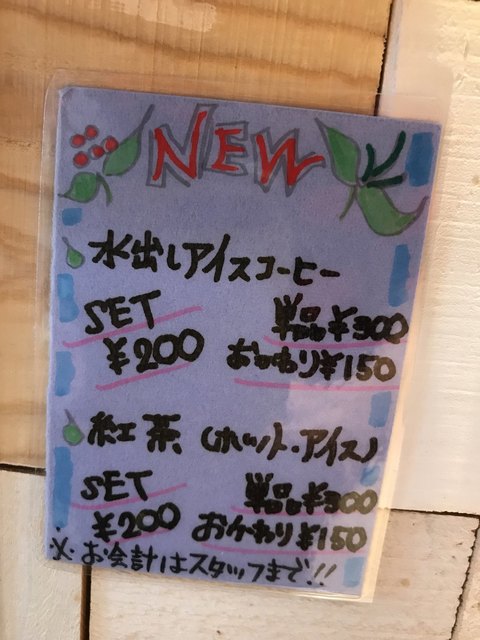 NEW
水出しアイスコーヒー
SET 単品¥300
¥200 おかわり¥150
紅茶 (ホット・アイス)
SET 単品¥300
¥200 おかわり¥150
※お会計はスタッフまで!!